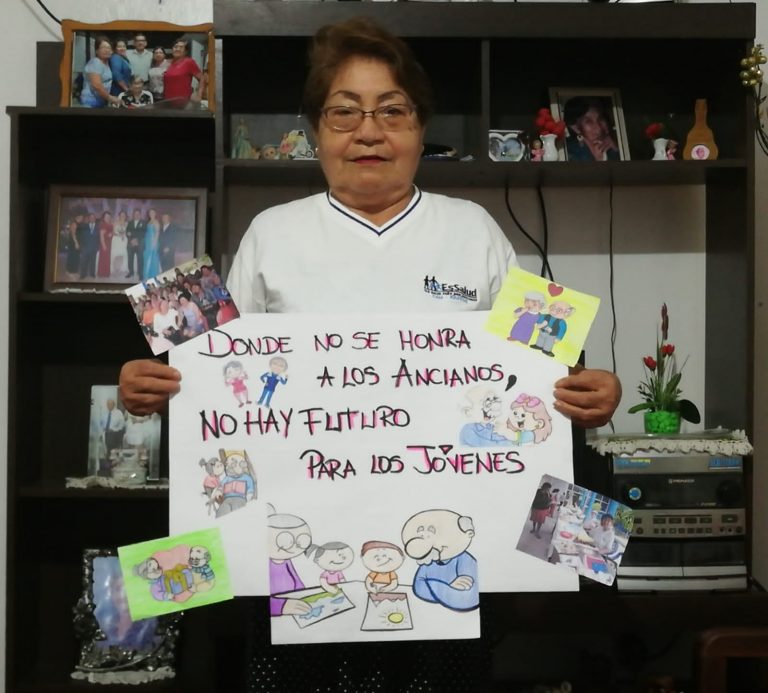 EsSalud
DONDE NO SE HONRA
A LOS ANCIANOS,
NO HAY FUTURO
PARA LOS JÓVENES